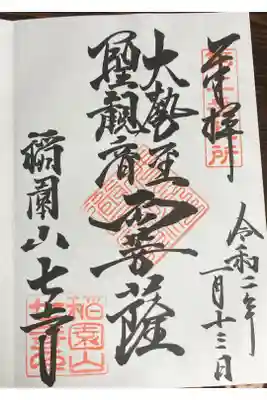 奉拝
令和二年
一月十三日
大勢至
聖観音
両菩薩
稲園山七寺
稲園山